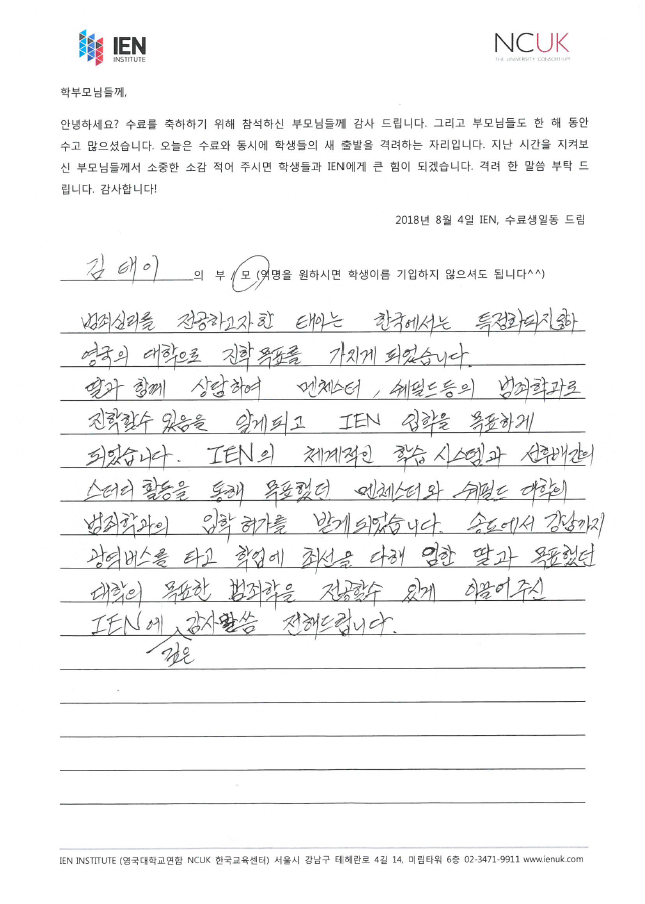 IEN
INSTITUTE
NCUK
THE UNIVERSITY CONSORTIUM
학부모님들께,
안녕하세요? 수료를 축하하기 위해 참석하신 부모님들께 감사 드립니다. 그리고 부모님들도 한 해 동안
수고 많으셨습니다. 오늘은 수료와 동시에 학생들의 새 출발을 격려하는 자리입니다. 지난 시간을 지켜보
신 부모님들께서 소중한 소감 적어 주시면 학생들과 IEN에게 큰 힘이 되겠습니다. 격려 한 말씀 부탁 드
립니다. 감사합니다!
2018년 8월 4일 IEN, 수료생일동 드림
김태이 의 부 / 모 (익명을 원하시면 학생이름 기입하지 않으셔도 됩니다^^)
범죄심리를 전공하고자 한 태이는 한국에서는 특정화되지 않아
영국의 대학으로 진학 목표를 가지게 되었습니다.
딸과 함께 상담하여 멘체스터, 쉐필드등의 범죄학과로
진학할수 있음을 알게되고 IEN 입학을 목표하게
되었습니다. IEN의 체계적인 학습 시스템과 선후배간의
스터디 활동을 통해 목표했던 멘체스터와 쉐필드 대학의
범죄학과의 입학 허가를 받게되었습니다. 송도에서 강남까지
광역버스를 타고 학업에 최선을 다해 임한 딸과 목표했던
대학의 목표한 범죄학을 전공할수 있게 이끌어주신
IEN에 감사말씀 전해드립니다.
깊은
IEN INSTITUTE (영국대학교연합 NCUK 한국교육센터) 서울시 강남구 테헤란로 4길 14, 미림타워 6층 02-3471-9911 www.ienuk.com